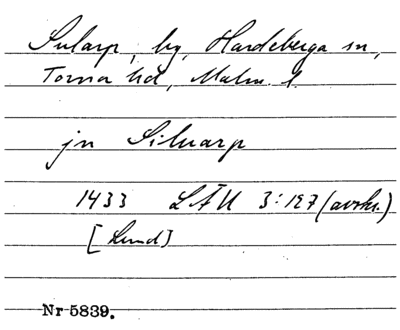 Sularp, by, Hardeberga sn,
Torna hd, Malm. l.
jn Siluarp
1433 LÄU 3:127 (avskr.)
[Lund]
Nr 5839.